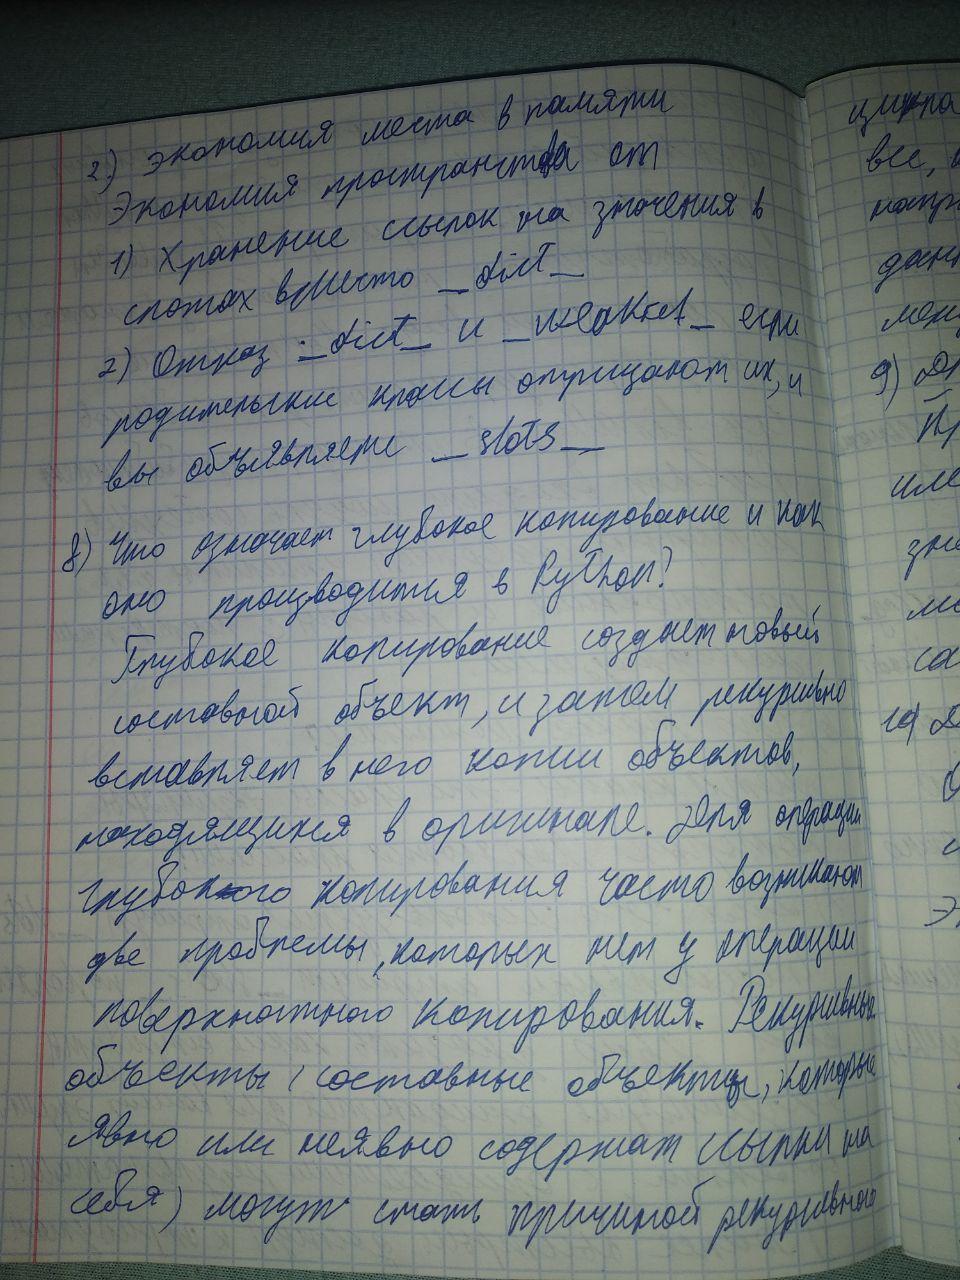 2.) экономия места в памяти
Экономия пространства от
1) Хранение ссылок на значения в
слотах вместо _dict_
2) Отказ _dict_ и _weakref_ если
родительские классы отрицают их, и
вы объявляете _slots_
8) Что означает глубокое копирование и как
оно производится в Python?
Глубокое копирование создает новый
составной объект, и затем рекурсивно
вставляет в него копии объектов,
находящихся в оригинале. Для операции
глубокого копирования часто возникают
две проблемы, которых нет у операции
поверхностного копирования. Рекурсивные
объекты (составные объекты, которые
явно или неявно содержат ссылки на
себя) могут стать причиной рекурсивного
цикла
все,
9)
10)